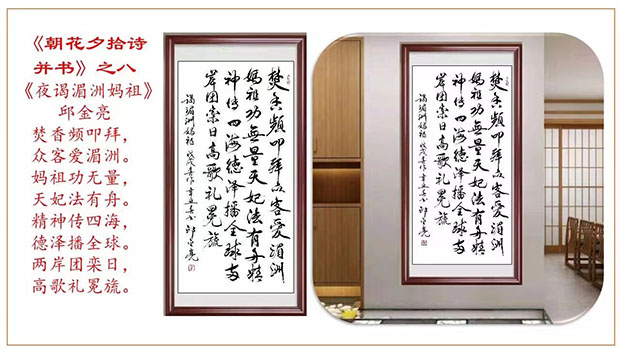 《朝花夕拾诗
并书》之八
《夜谒湄洲妈祖》
邱金亮
焚香频叩拜，
众客爱湄洲。
妈祖功无量，
天妃法有舟。
精神传四海，
德泽播全球。
两岸团栾日，
高歌礼冕旒。
焚香頻叩拜众客爱湄洲
妈祖功無量天妃法有舟精
神传四海德泽播全球两
岸团栾日高歌礼冕旒
谒湄洲妈祖 戊戌春作 辛丑春书 邱金亮
焚香頻叩拜众客爱湄洲
妈祖功無量天妃法有舟精
神传四海德泽播全球两
岸团栾日高歌礼冕旒
谒湄洲妈祖 戊戌春作 辛丑春书 邱金亮